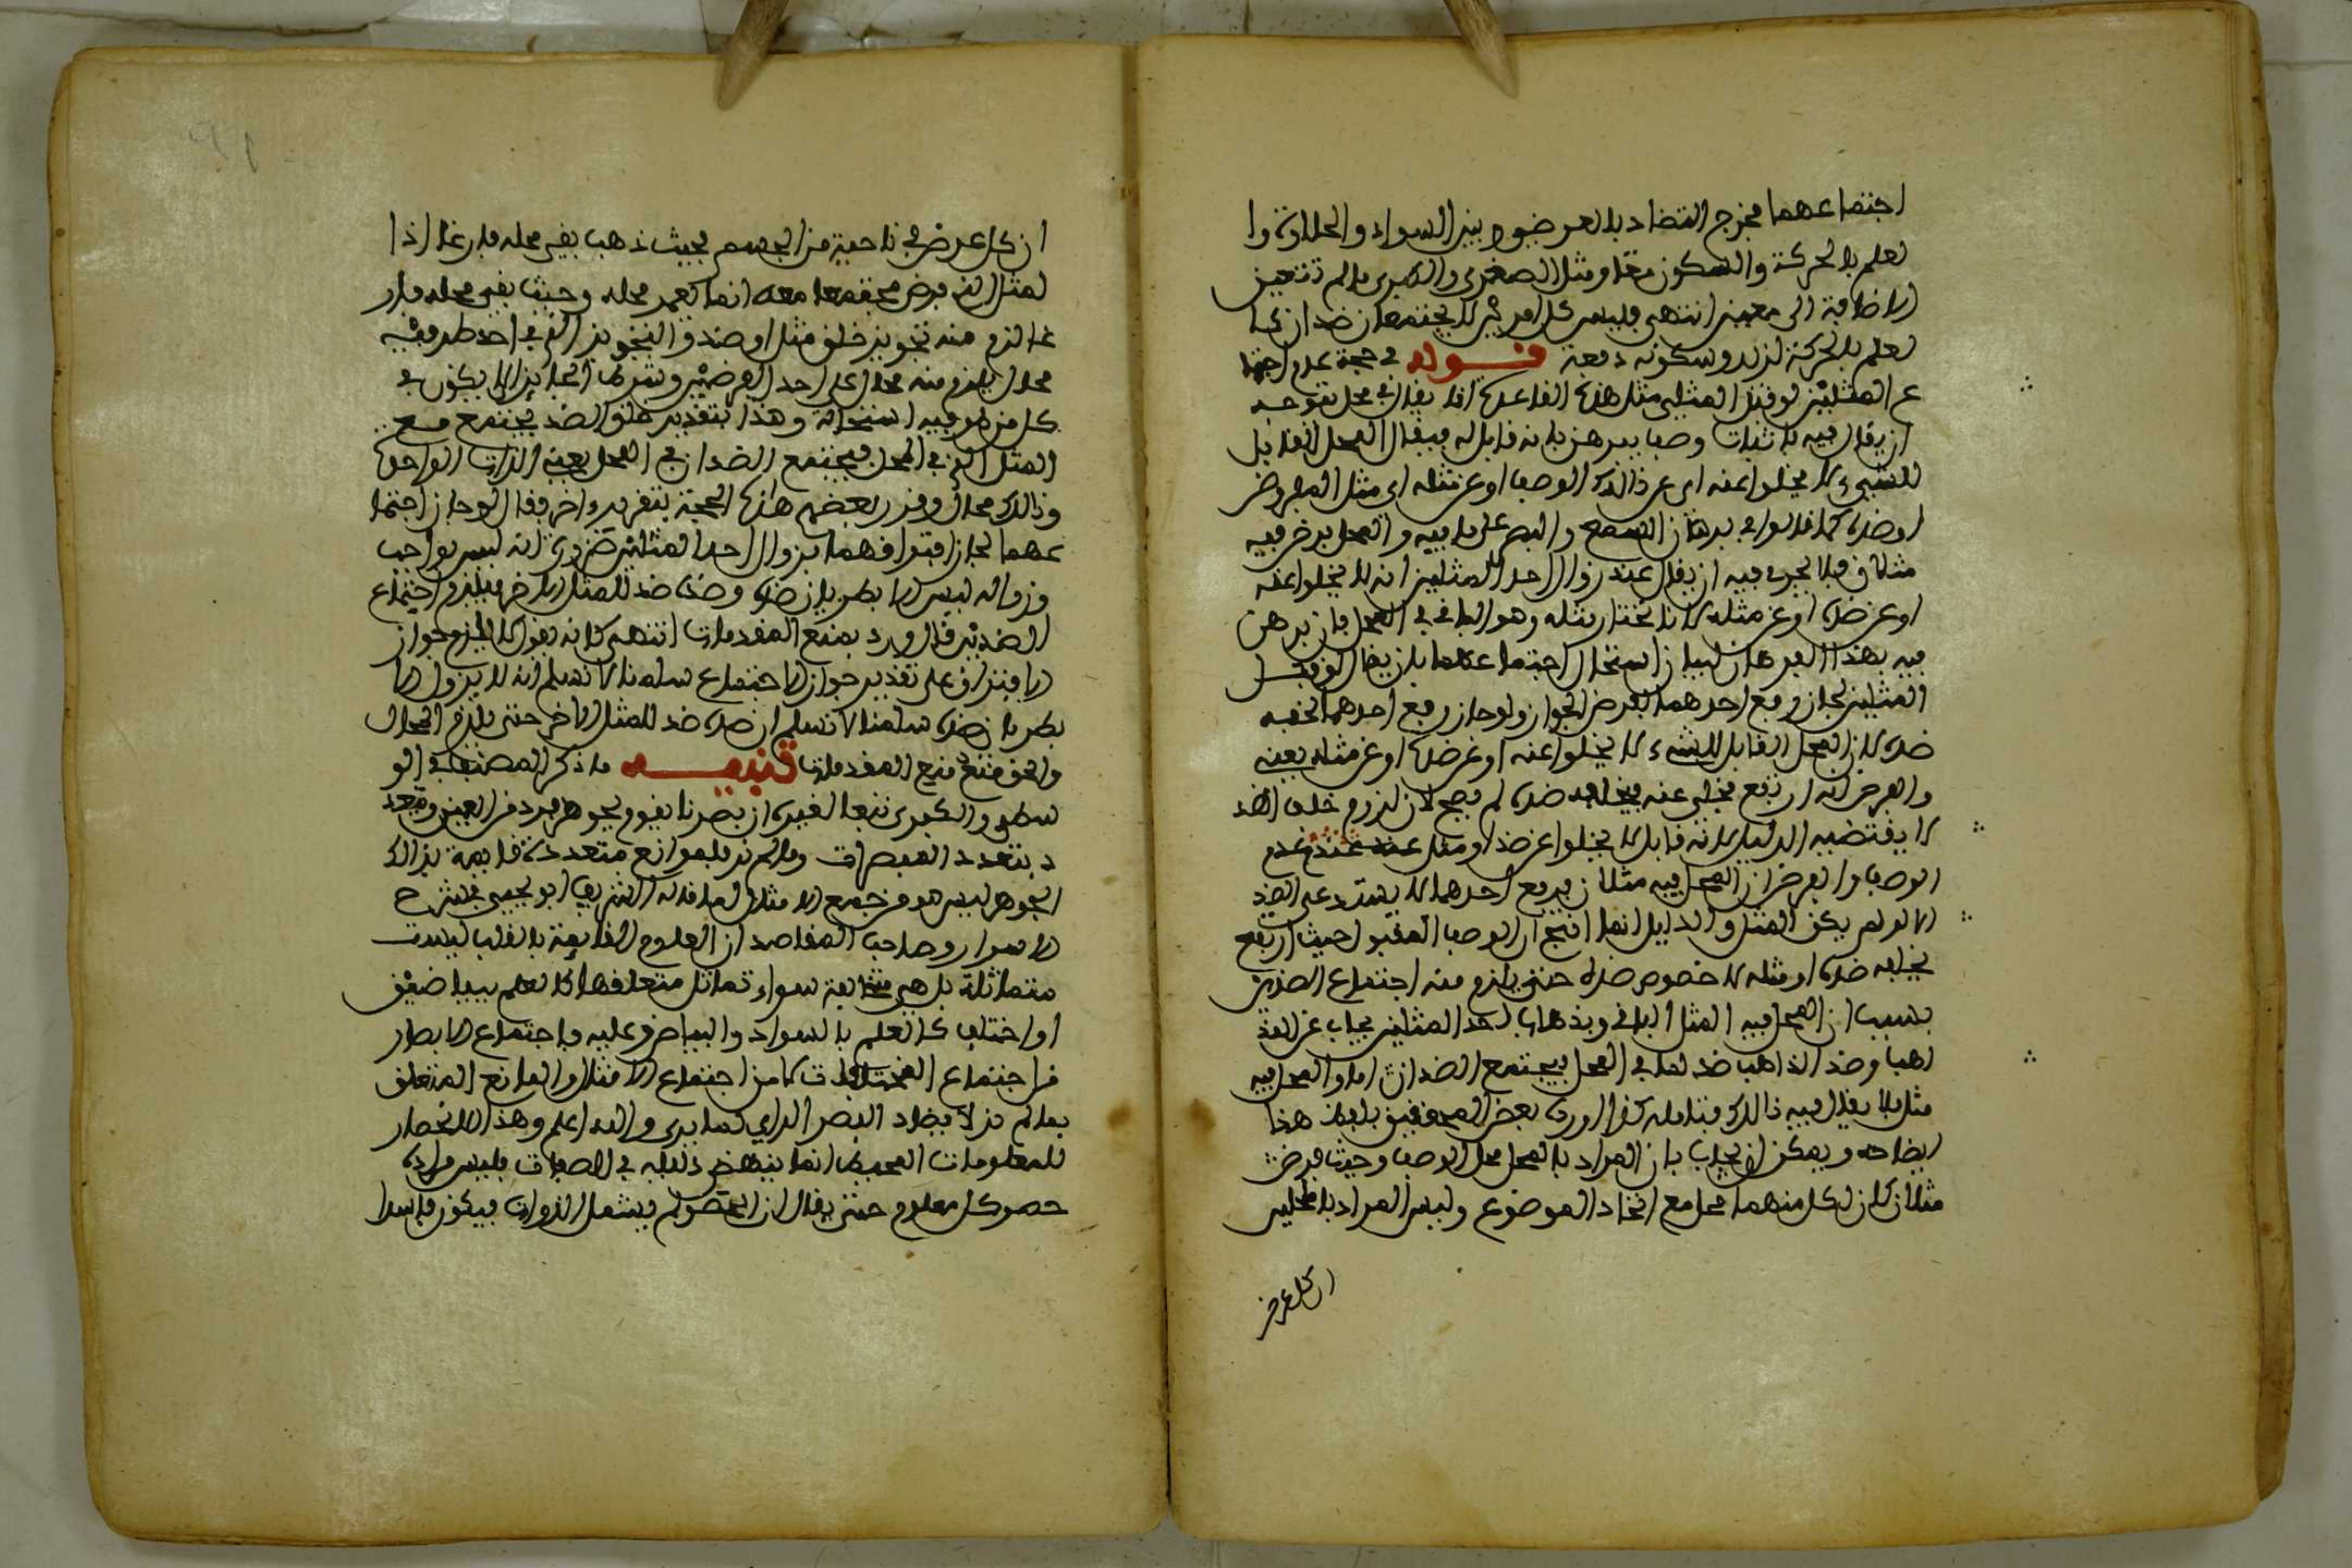 اجتماعهما مخرج التضاد بالعرضي وبين السواد والحلاوة وا
لعلم بالحركة والسكون معا ومثل الصغرى والكبرى ما لم تتعين
الاضافة الى معين انتهى فليس كل امرين لا يجتمعان ضدان كما
لعلم بالحركة لزيد وسكونه دفعة قوله في حجة عدم اجتما
ع المثلين لو قبل المثلين مثل هذه القاعدة اذا يقال في محل نقوضه
ان يقال فيه باثبات وصف يبرهن بانه قابل له فيقال المحل القابل
للشيء لا يخلوا عنه اي عن ذالك الوصف او عن مثله اي مثل المفروض
او ضده كما قالوا في برهان السمع والبصر على ما فيه والمحل بفرض فيه
مثلان فلا يجري فيه ان يقال عند زوال احد المثلين انه لا يخلوا عنه
او عن ضده او عن مثله لانا نختار مثله وهو الباقي في المحل فان برهن
فيه بهذا البرهان لبيان استحال اجتماعهما بان يقال لو قبل
المثلين لجاز رفع احدهما بفرض الجواز ولو جاز رفع احدهما لخلفه
ضده لان المحل القابل للشيء لا يخلوا عنه او عن ضده او عن مثله بعينه
والفرض انه ارتفع فخلي عنه فيخلفه ضده لم يصح لان لزوم خلف الضد
لا يقتضيه الدليل لانه قابل لا يخلوا عن ضد او مثل عند عدم
الوصف والفرض ان المحل فيه مثلان فرفع احدهما لا يستدعي الضد
الا لو لم يكن المثل والدليل انما انتج ان الوصف المقبول حيث ارتفع
يخلفه ضده او مثله لا خصوص ضده حتى يلزم منه اجتماع الضدين
بسبب ان المحل فيه المثل الباقي وبذهاب احد المثلين يجاب عن الذ
اهب وضد الذاهب ضد لما في المحل فيجتمع الضدان اما والمحل فيه
مثل فلا يقال فيه ذالك فتامله كذا اورده بعض المحققين بلفظ هذا
ايضاحه ويمكن ان يجاب بان المراد بالمحل محل الوصف وحيث فرض
مثلان كان لكل منهما محل مع اتحاد الموضوع وليس المراد بالمحلين
ان كل عرض
ان كل عرض في ناحية من الجسم بحيث ذهب بقي محله فارغا اذا
لمثل الذي فرض مجتمعا معه انما يعمر محله وحيث بقي محله فار
غا لزم منه تجويز خلق مثل او ضد والتجويز الذي في احد طرفيه
محال يلزم منه محال على احد العرضين وشرط الجايز الا يكون في
كل من طرفيه استحالة وهذا بتقدير خلق الضد يجتمع مع
المثل الذي في المحل فيجتمع الضدان في المحل بعينه الذات الواحدة
وذالك محال وقرر بعضهم هذه الحجة بتقرير اخر فقال لو جاز اجتما
عهما لجاز افتراقهما بزوال احد المثلين ضرورة انه ليس بواجب
وزواله ليس الا بطريان ضده وضده ضد للمثل الاخر فيلزم اجتماع
الضدين قال ورد بمنع المقدمات انتهى كانه يقول لا يلزم جواز
الافتراق على تقدير جواز الاجتماع سلمنا لا نسلم انه لا يزول الا
بطريان ضده سلمنا لا نسلم ان ضده ضد للمثل الاخر حتى يلزم المحال
والحق منع المقدمات تنبيه ما ذكر المصنف في الو
سطى والكبرى تبعا لغيره ان بصرنا يقوم بجوهر فرد من العين ويتعد
د بتعدد المبصرات وما لم نر فلموانع متعددة قايمة بذالك
الجوهر ليس هو من جمع الامثال لما قاله الشريف ابو يحيى في شرح
الاسرار وصاحب المقاصد ان العلوم القايمة بالقلب ليست
متماثلة بل هي مختلفة سواء تماثل متعلقها كالعلم ببياضين
او اختلف كالعلم بالسواد والبياض وعليه فاجتماع الابصار
من اجتماع المختلفات لا من اجتماع الامثال والمانع المتعلق
بما لم نر لا يضاد البصر الذي لما يرى والله اعلم وهذا الانحصار
للمعلومات المحيط انما ينهض دليله في الصفات فليس مراده
حصر كل معلوم حتى يقال ان المقسوم يشمل الذوات فيكون فاسدا